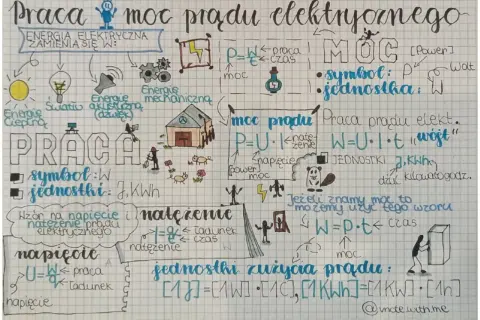 Praca i moc prądu elektrycznego
ENERGIA ELEKTRYCZNA
ZAMIENIA SIĘ W:
Energię cieplną
Światło
Energię akustyczną (dźwięk)
Energię mechaniczną
P=W/t → praca
→ czas
moc
MOC [Power]
symbol: P
jednostka: W
Wat
PRACA
symbol: W
jednostki: J, kWh
moc prądu
P=U·I → natężenie
napięcie
[power]
moc
Praca prądu elekt.
W=U·I·t "wójt"
JEDNOSTKI J, kWh
Wzór na napięcie
natężenie prądu
elektrycznego
natężenie
I=q/t → ładunek
→ czas
natężenie
napięcie
U=W/q → praca
→ ładunek
napięcie
Jeżeli znamy moc to
możemy użyć tego wzoru
W=P·t ← czas
praca
moc
jednostki zużycia prądu:
[1J]=[1W]·[1s], [1kWh]=[1kW]·[1h]